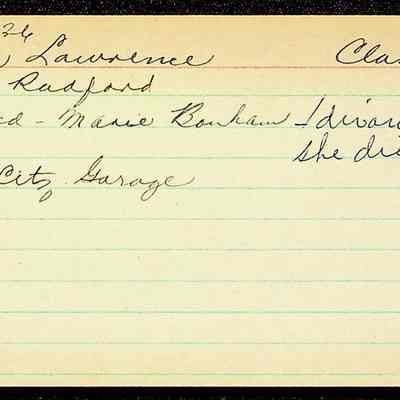 36
Lawrence Clas
Radford
ed - Marie Bonham - 1 divor
she die
City Garage